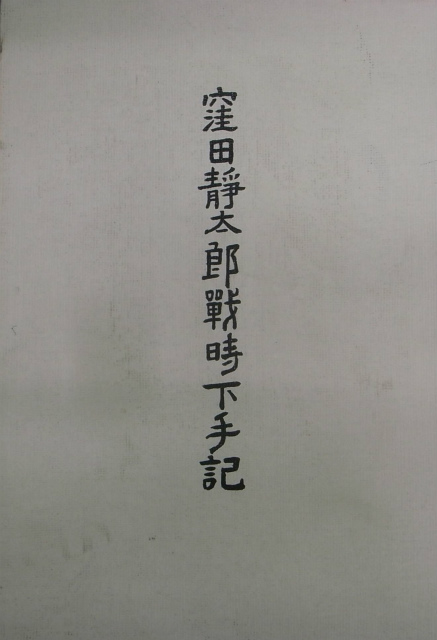 窪田靜太郎戰時下手記